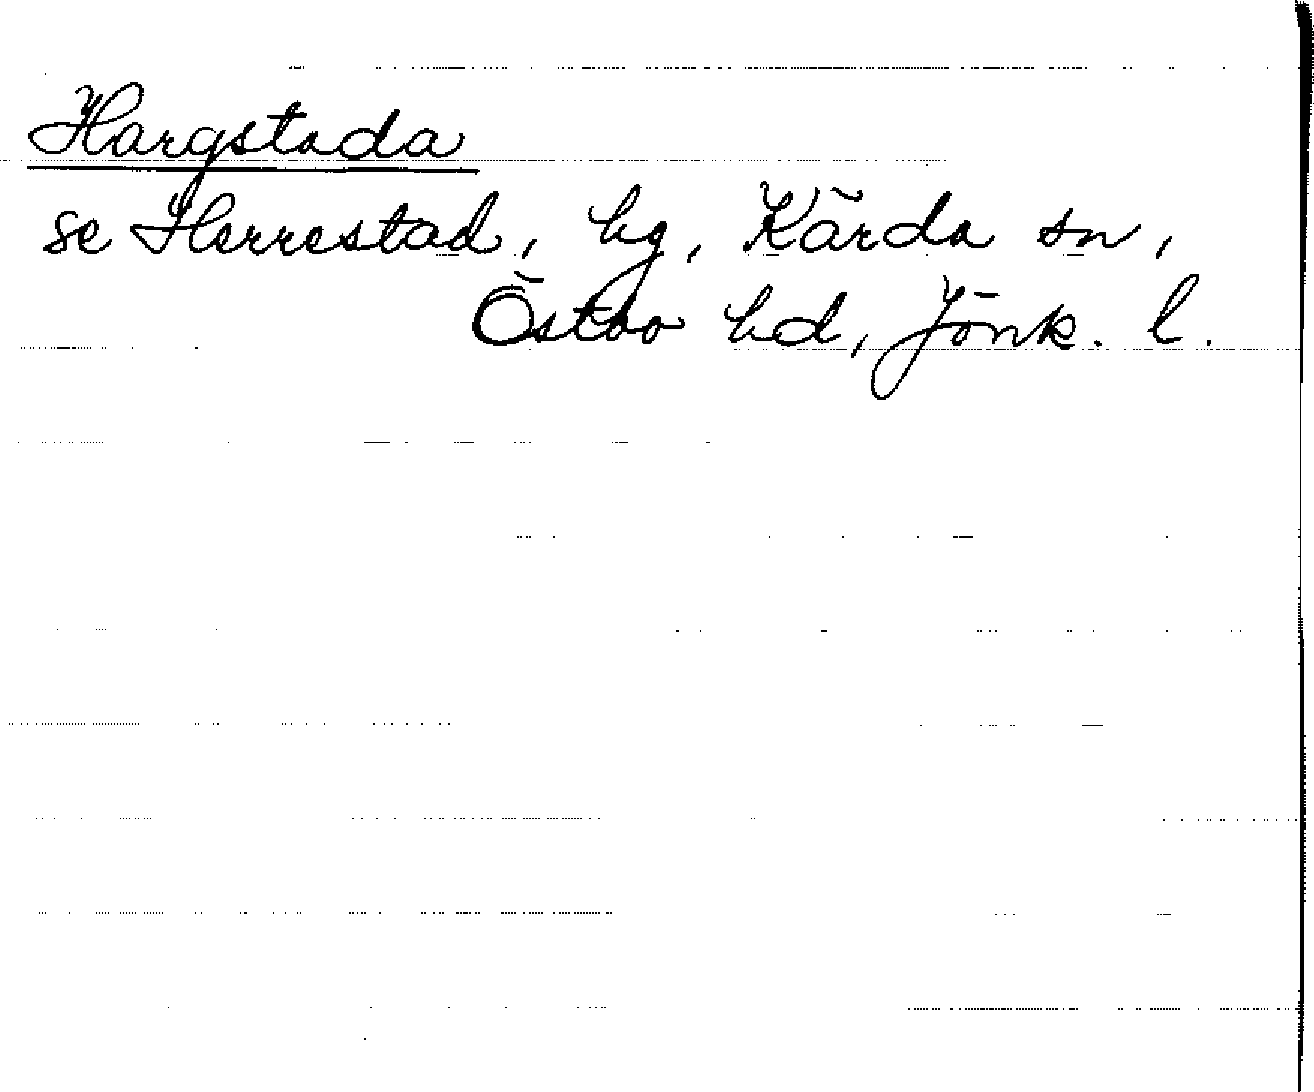 Hargstada
se Herrestad, hg, Kärda sn,
Östbo hd, Jönk. l.